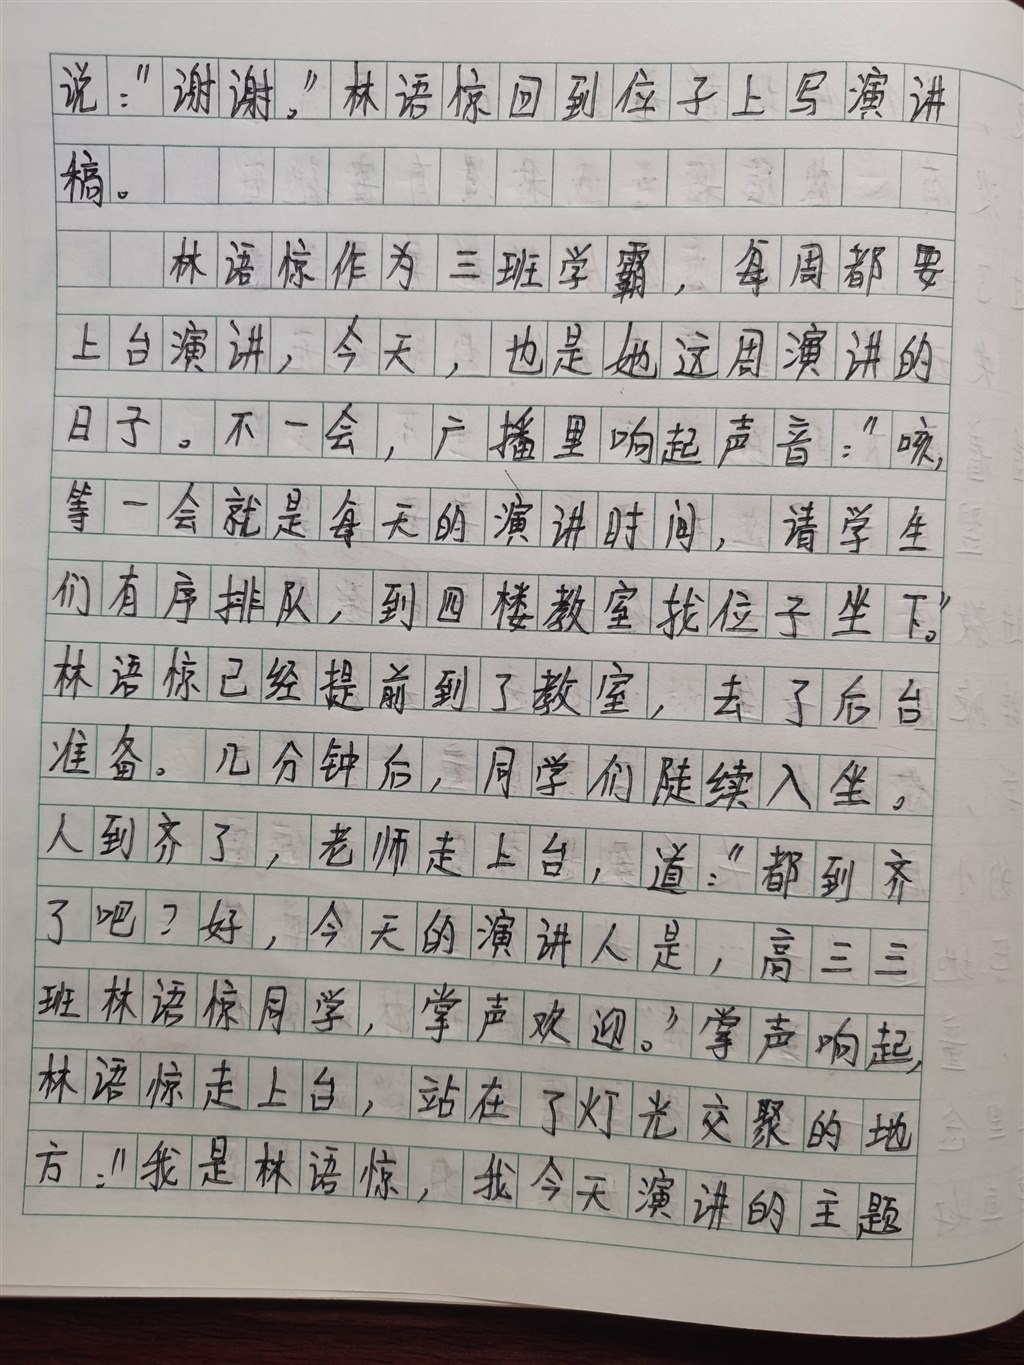 说："谢谢。"林语惊回到位子上写演讲
稿。
林语惊作为三班学霸，每周都要
上台演讲，今天，也是她这周演讲的
日子。不一会，广播里响起声音："咳，
等一会就是每天的演讲时间，请学生
们有序排队，到四楼教室找位子坐下。"
林语惊已经提前到了教室，去了后台
准备。几分钟后，同学们陡续入坐。
人到齐了，老师走上台，道："都到齐
了吧？好，今天的演讲人是，高三三
班林语惊同学，掌声欢迎。"掌声响起，
林语惊走上台，站在了灯光交聚的地
方："我是林语惊，我今天演讲的主题